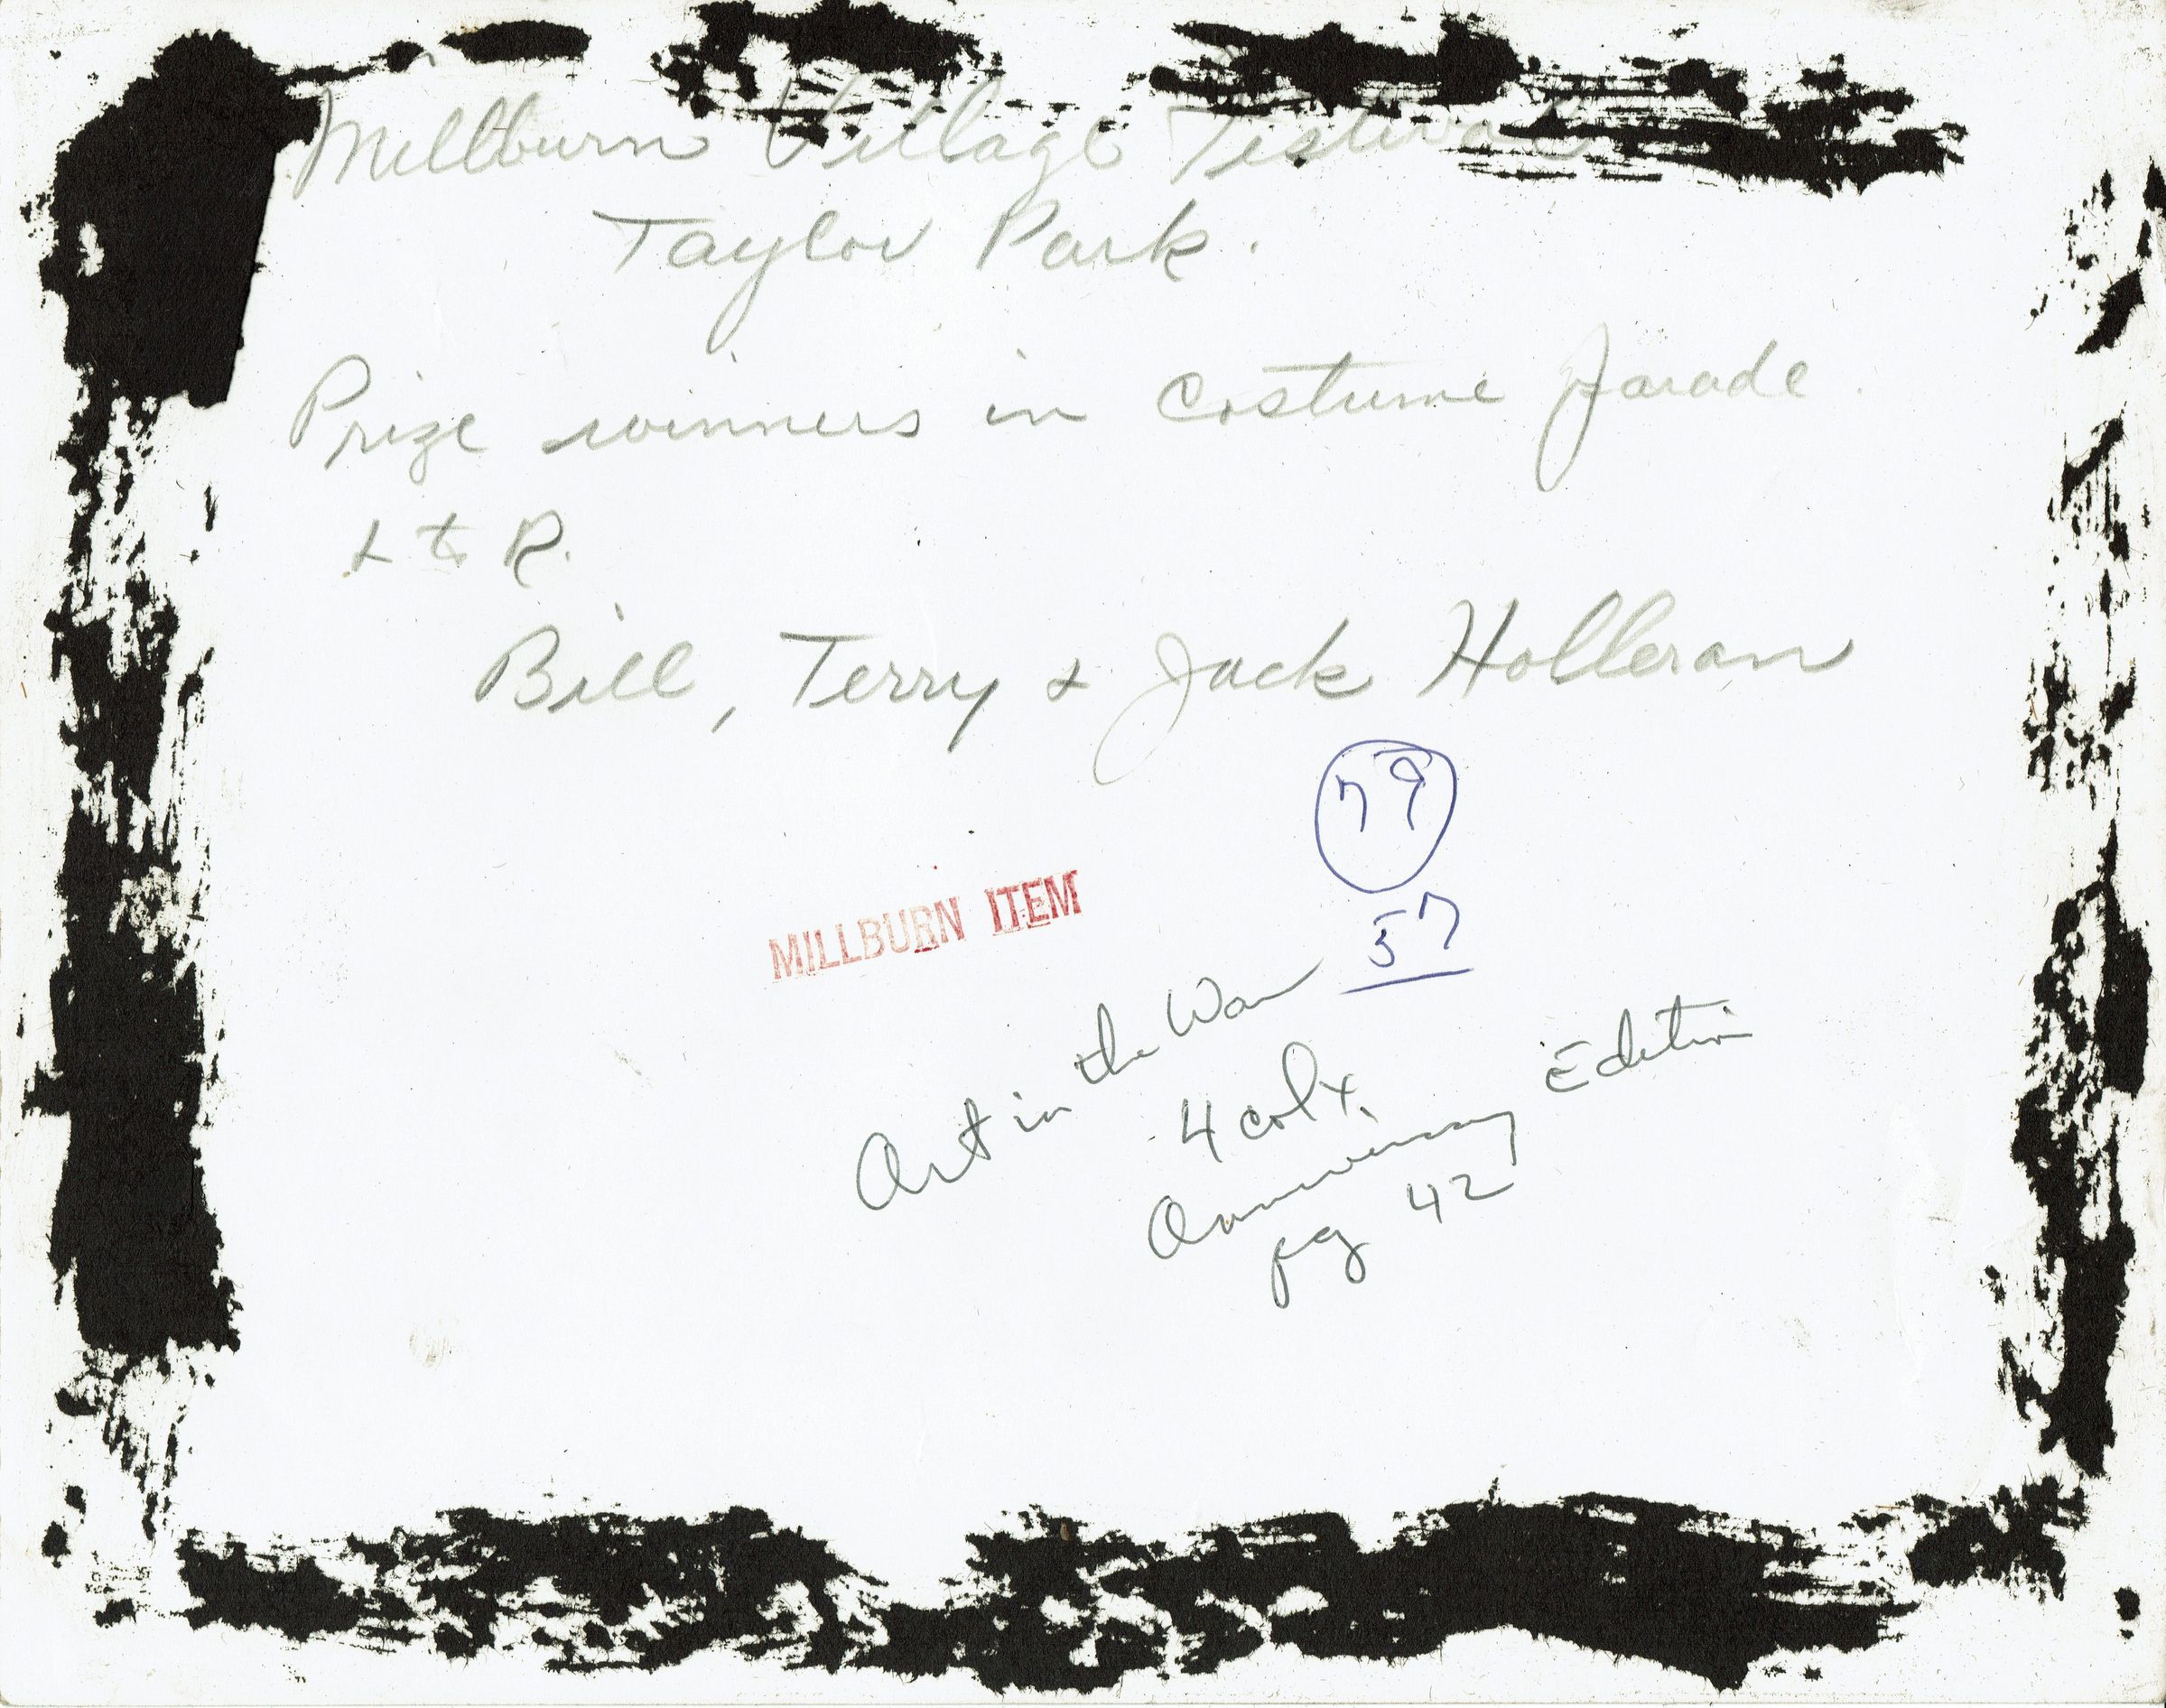 Millburn Village Festival
Taylor Park.
Prize winners in costume parade.
L to R.
Bill, Terry & Jack Holleran
79
57
MILLBURN ITEM
Art in the War
4 colx.
Anniversary Edition
pg 42